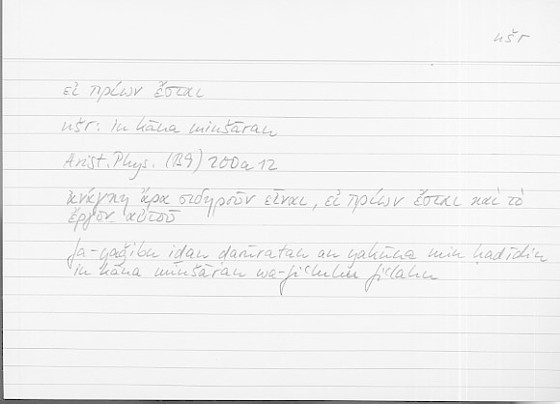 nšr
εἰ πρίων ἔσται
nšr: in kāna minšāran
Arist. Phys. (B9) 200a12
ἀνάγκη ἄρα σιδηροῦν εἶναι, εἰ πρίων ἔσται καὶ τὸ
ἔργον αὐτοῦ
fa-yaǧibu iḏan ḍarūratan an yakūna min ḥadīdin
in kāna minšāran wa-fiʿluhu fiʿlahu